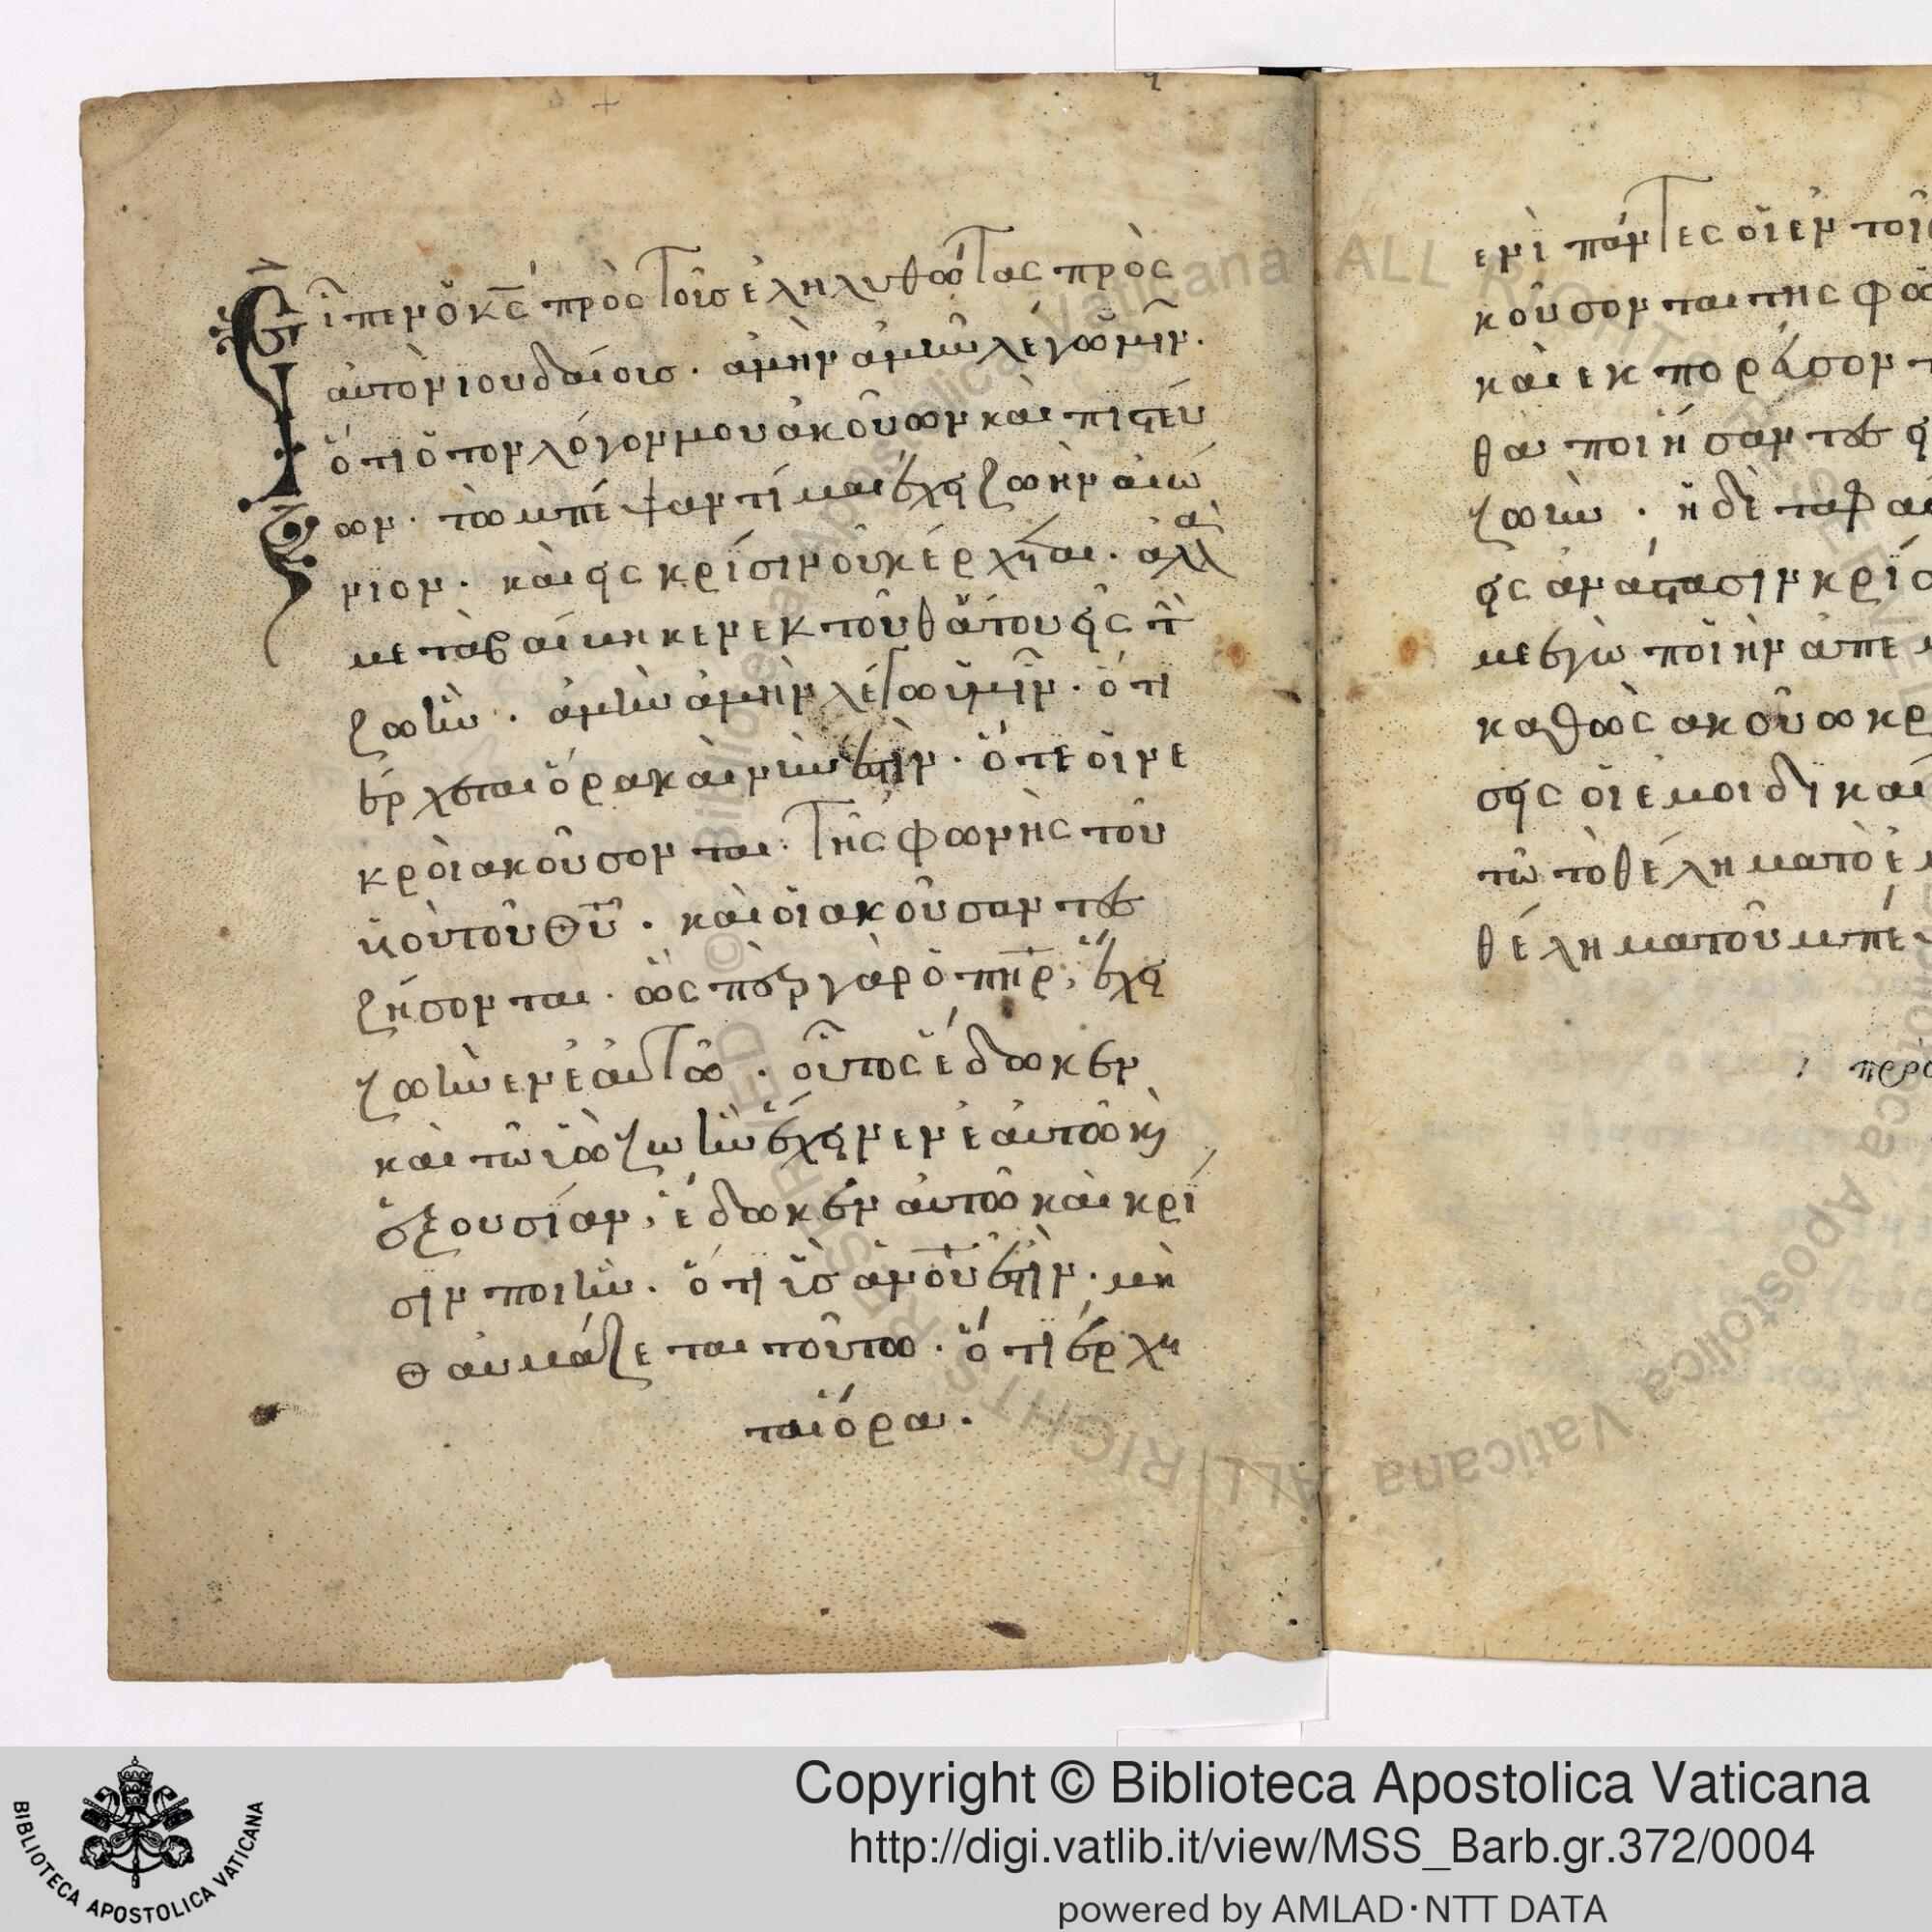 Εἶπεν ὁ κ̅ς̅ πρὸς τοῖσ ἐληλυθώτας πρὸς
αὐτὸν ιουδαίοισ · ἀμὴν ἀμὴν λέγω ὑμῖν ·
ὅτι ὁ τὸν λόγον μου ἀκούων καὶ πιστεύ
ων · τω πέμψαντί μαι ἔχει ζωὴν αἰώ
νιον · καὶ εις κρίσιν οὐκ έρχηται · ἀλλὰ
μεταβαίνηκεν εκ τοῦ θανάτου εἰς τὴν
ζωὴν · ἀμὴν ἀμὴν λέγω ὑμῖν · ὅτι
έρχεται ὅρα καὶ νῦν ἐστὶν · ὅτε οἱ νε
κροὶ ακούσονται τῆς φωνὴς τοῦ
ὑοὺ τοῦ θ̅υ̅ · καὶ οἱ ακούσαντες
ζήσονται · ὥς περ γὰρ ὁ π̅η̅ρ̅, ἔχει
ζωὴν εν ἑαυτῶ · οὕτος έδωκεν
καὶ τῶ ὑῶ ζωὴν ἔχειν εν ἑαυτῶ κὶ
ἐξουσίαν, έδωκεν αὐτῶ καὶ κρί
σιν ποιὴν · ὅτι ὑσ ἀ̅ν̅ο̅υ̅ ἐστὶν · μὴ
θαυμάζεται τοῦτω · ὅτι έρχη
ται ὅρα ·
ενὶ πάντες οἱ εν τοῖ
κούσονται της φω
καὶ εκπορεύσοντ
θα ποιήσαντες εἰ
ζωὴν · ἡ δὲ τα φαῦ
εις ανάστασιν κρίσ
με εγὼ ποιὴν ἀπ ε
καθὼς ακούω κρ
σεις οἱ εμοι δικαί
τῶ τὸ θέλημα τὸ ἐμ
θέλημα τοῦ πέμ
Copyright © Biblioteca Apostolica Vaticana
http://digi.vatlib.it/view/MSS_Barb.gr.372/0004
powered by AMLAD·NTT DATA
BIBLIOTECA APOSTOLICA VATICANA